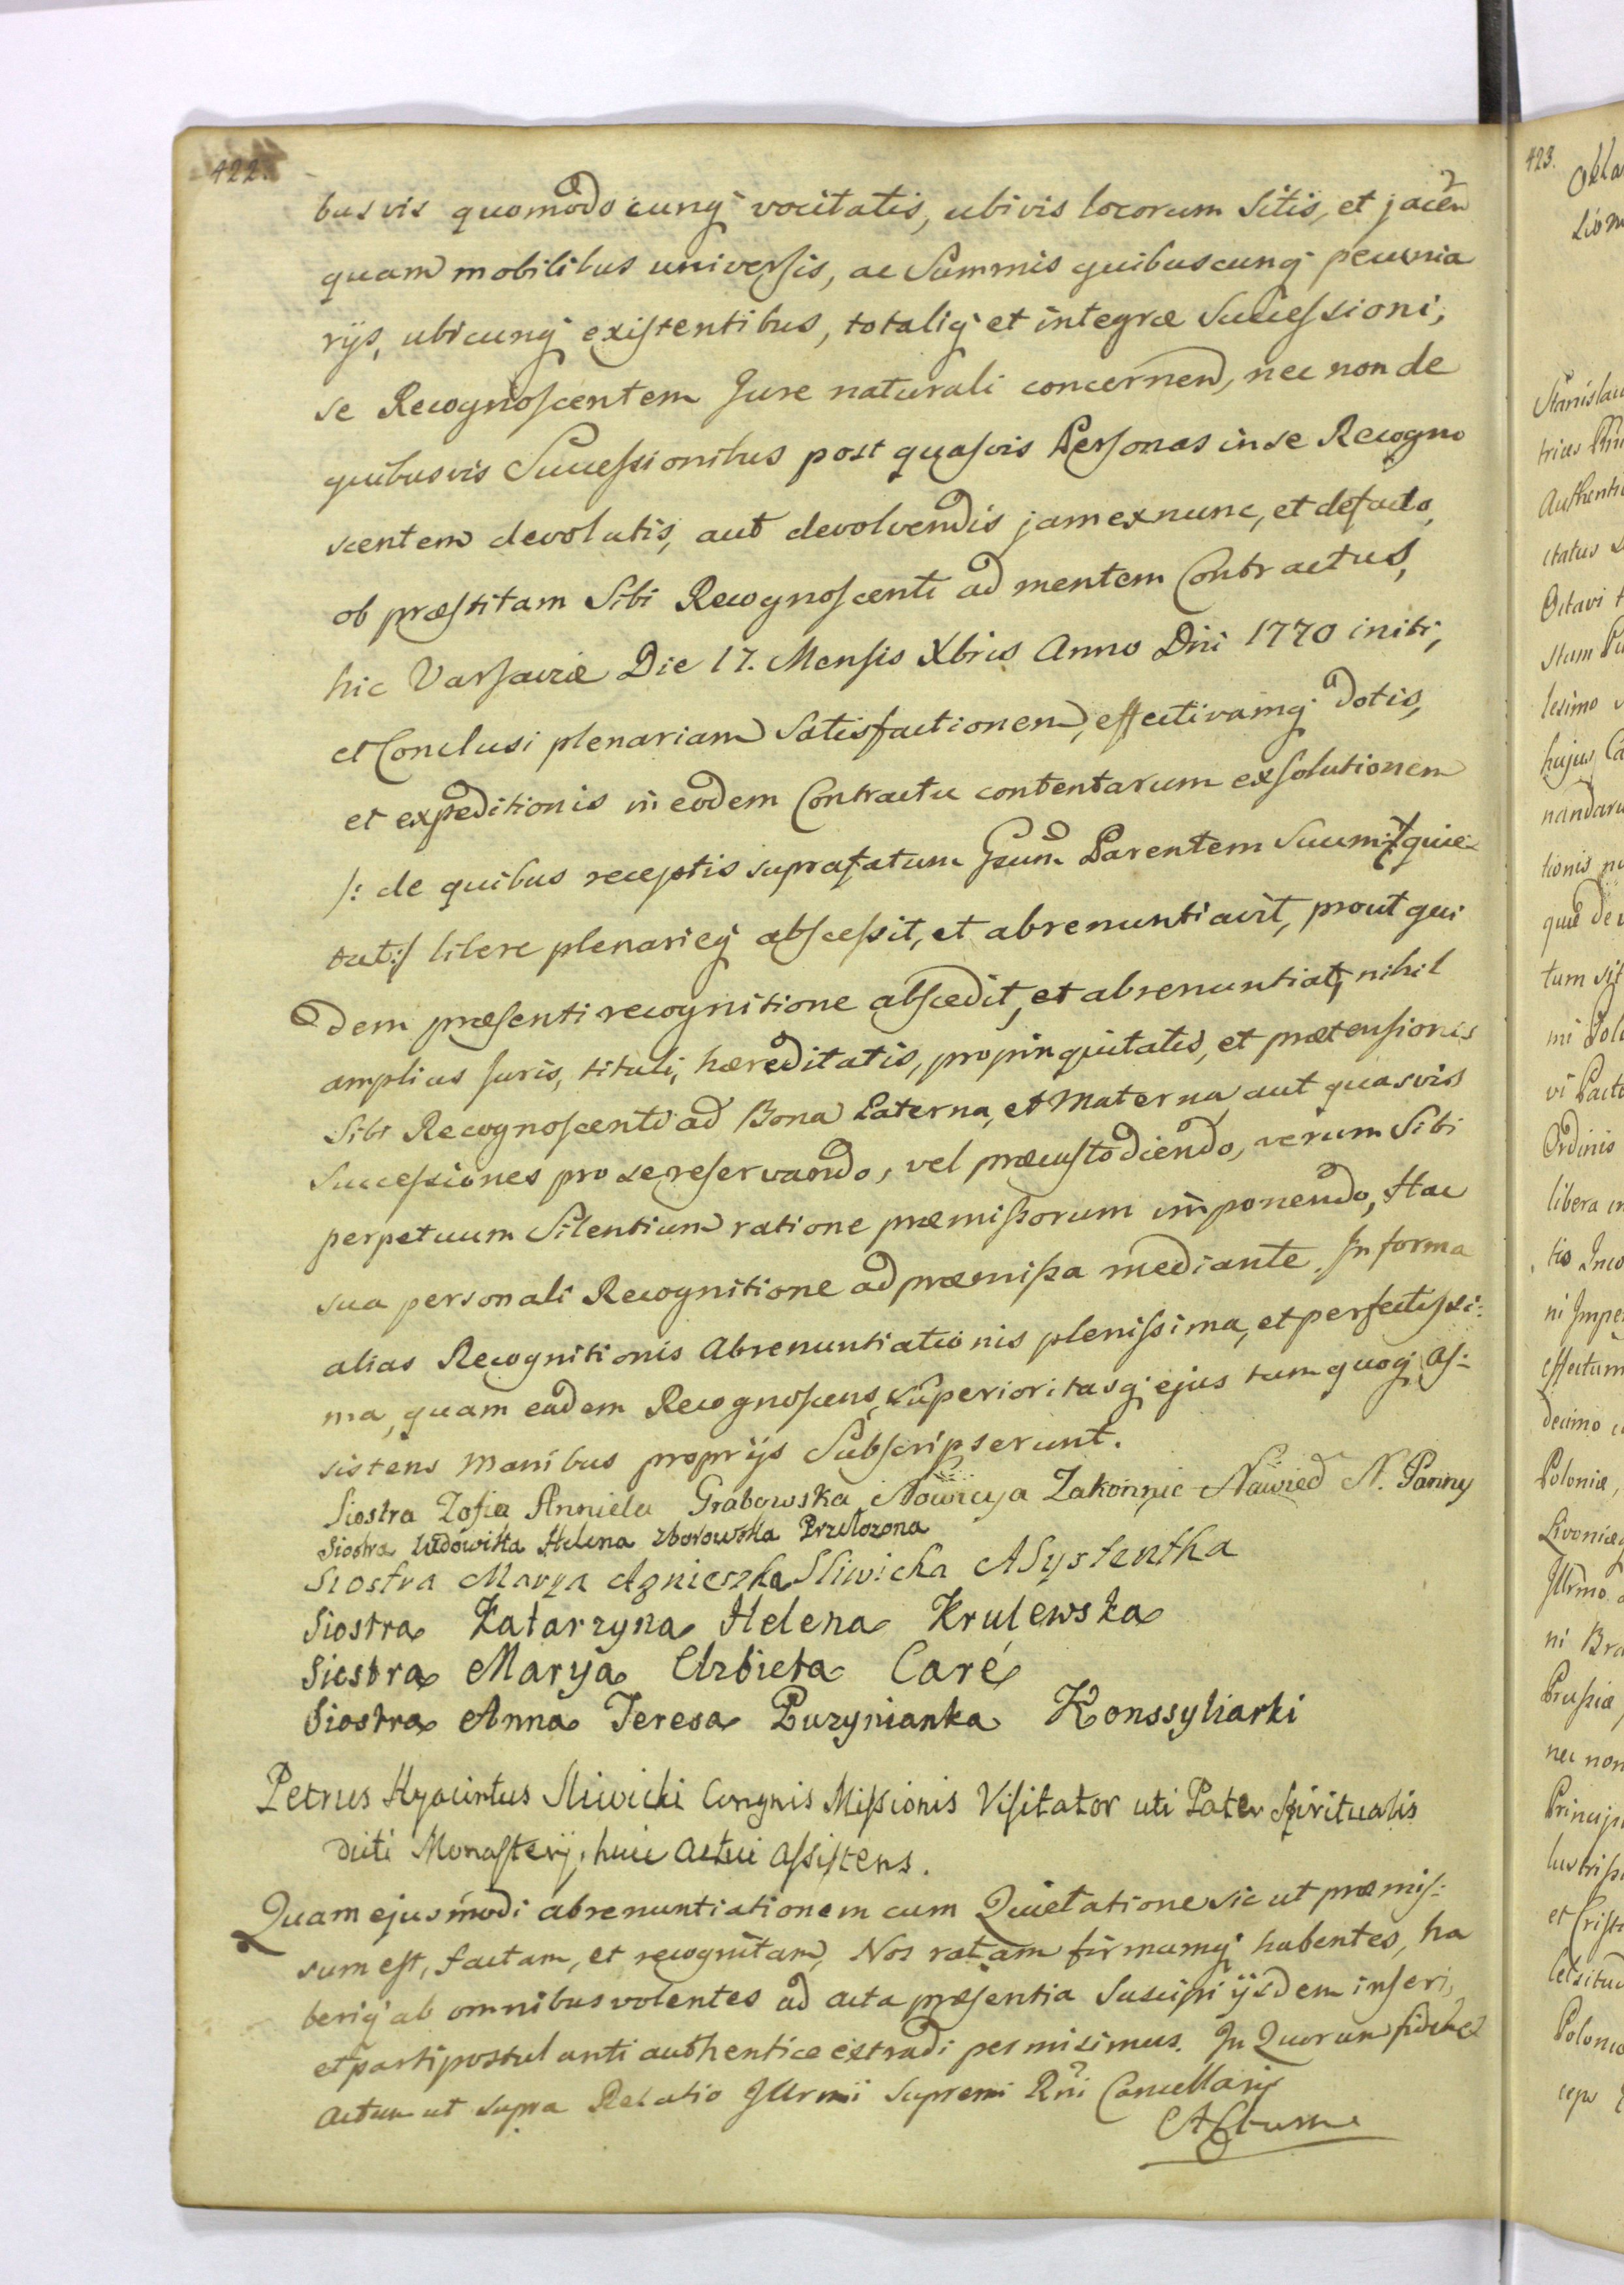 422.
busvis quomodocunq vocitatis, ubivis locorum sitis, et jacen
quam mobilibus universis, ac Summis quibuscunq pecunia
rijs, ubicunq existentibus, totaliq et integræ Successioni,
se Recognoscentem Jure naturali concernen, nec non de
quibusvis Successionibus post quasvis Personas in se Recogno
scentem devolutis, aut devolvendis jam ex nunc, et de facto,
ob præstitam Sibi Recognoscenti ad mentem Contractus,
hic Varsaviæ Die 17. Mensis Xbris Anno Dni 1770 initi,
et Conclusi plenariam Satisfactionem, effectivamq Dotis,
et expeditionis in eodem Contractu contentarum exsolutionem
/: de quibus receptis suprafatum Gsum Parentem Suum quie-
tat :/ libere plenarieq abscessit, et abrenuntiavit, prout qui
dem præsenti recognitione abscedit, et abrenuntiat, nihil
amplius Juris, tituli, hæreditatis, propinquitatis, et prætensionis
Sibi Recognoscenti ad Bona Paterna, et Materna, aut quasvis
Successiones pro se reservando, vel præcustodiendo, verum Sibi
perpetuum Silentium ratione præmissorum imponendo, Hac
sua personali Recognitione ad præmissa mediante. In forma
alias Recognitionis Abrenuntiationis plenissima, et perfectissi:
ma, quam eadem Recognoscens, Superioritasq ejus tum quoq As:
sistens Manibus proprijs Subscripserunt.
Siostra Zofia Anniela Grabowska Nowicya Zakonnic Nawied N. Panny
Siostra Ludowika Helena Zborowska Przełozona
Siostra Marya Agnieszka Sliwicka ASystentka
Siostra Katarzyna Helena Krulewska
Siostra Marya Elzbieta Caré
Siostra Anna Teresa Puzynianka Konssyliarki
Petrus Hyacintus Sliwicki Congnis Missionis Visitator uti Pater Spiritualis
dicti Monasterij, huic Actui Assistens.
Quam ejusmodi abrenuntiationem cum Quietatione sic ut præmis:
sum est, factam, et recognitam, Nos ratam firmamq habentes, ha
beriq ab omnibus volentes ad acta præsentia Suscipi ijsdem inseri,
et parti postulanti authentice extradi permisimus. In Quorum fidem
Actum ut supra Relatio Illrmi Supremi Rni Cancellarij
423.
Obla
tion
Stanislau
Authenti
Octavi
hujus Ca
nandaru
tionis
tum sit
mi Polo
vi Pacto
Ordinis
libera
tio Inco
ni Impe
effectum
decimo
Poloniæ,
Livoniæ
Illrmo
ni Bra
Prussiæ,
nec non
Princip
et Crist
Poloniæ